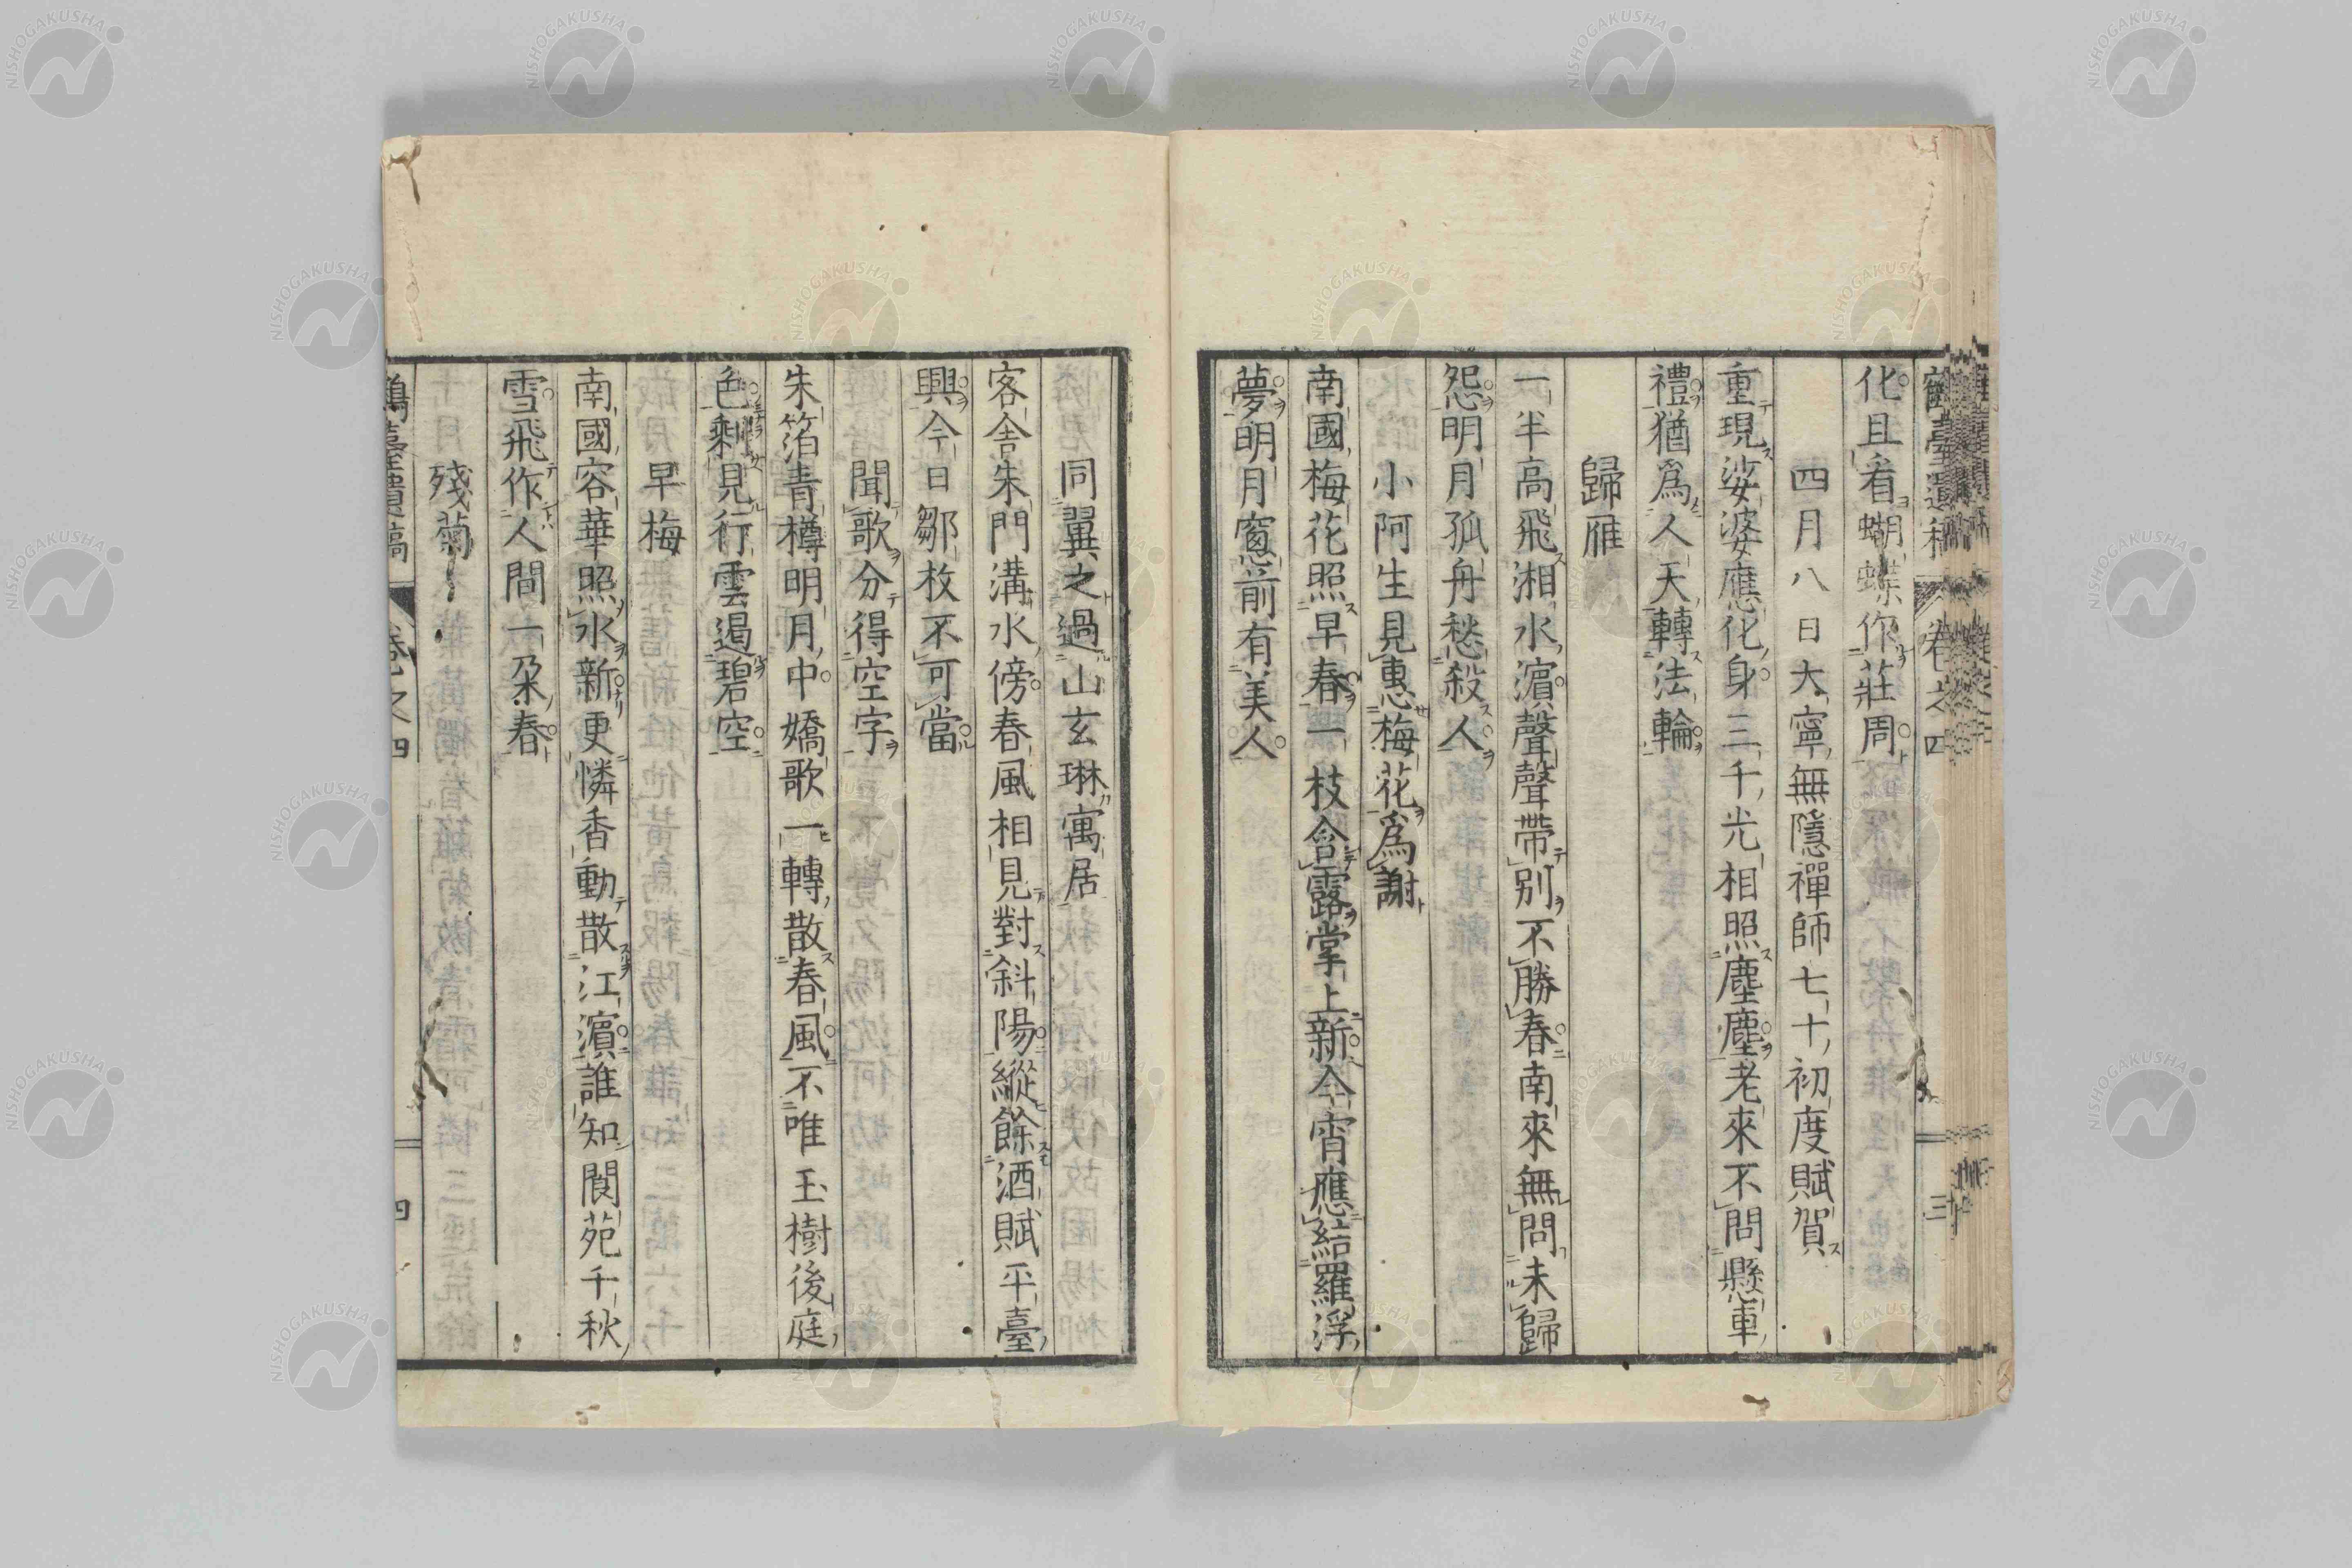 化且看蝴蝶作莊周
四月八日大寧無隱禪師七十初度賦賀
重現娑婆應化身三千光相照塵塵老來不問懸車
禮猶爲人天轉法輪
歸雁
一半高飛湘水濵聲聲帶別不勝春南來無問未歸
怨明月孤舟愁殺人
小阿生見惠梅花爲謝
南國梅花照早春一枝含露掌上新今宵應結羅浮
夢明月窻前有美人
同翼之過山玄琳寓居
客舍朱門溝水傍春風相見對斜陽縱餘酒賦平臺
興今日鄒枚不可當
聞歌分得空字
朱箔青樽明月中嬌歌一轉散春風不唯玉樹後庭
色剩見行雲遏碧空
早梅
南國容華照水新更憐香動散江濵誰知閬苑千秋
雪飛作人間一朶春
殘菊
鶴臺遺稿 卷之四 四
NISHOGAKUSHA